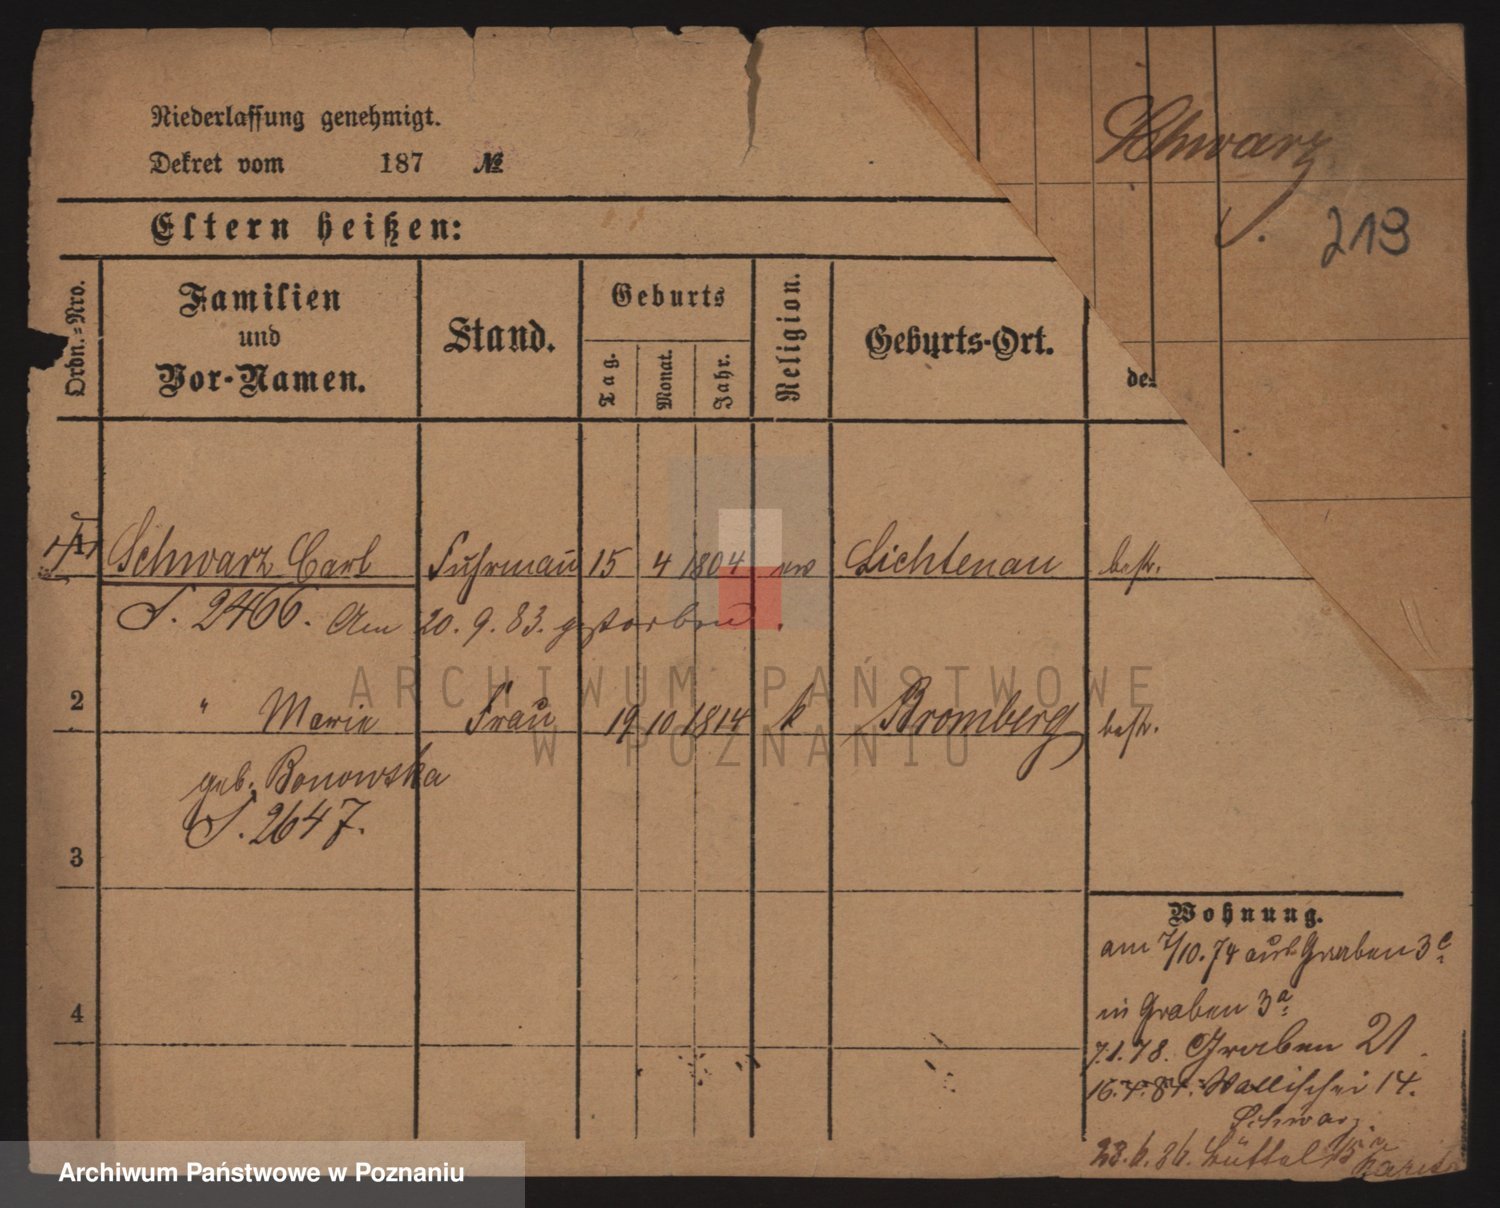 Niederlassung genehmigt.
Dekret vom 187 №
Schwarz
213
Eltern heißen:
Ordn.-Nro.
Familien und Vor-Namen.
Stand.
Geburts
Tag.
Monat.
Jahr.
Religion.
Geburts-Ort.
de
1 Schwarz Carl Fuhrmañ 15 4 1804 ev Lichtenau bestr.
S. 2466. Am 20. 9. 83. gestorben.
2 " Marie Frau 19 10 1814 k Bromberg bestr.
geb. Bonowska
S. 2647.
3
4
Wohnung.
am 7/10.74 aus Graben 3c
in Graben 3a
7.1.78. Graben 21
16.4.84. Wallischei 14.
Schwarz.
23.6.86.
ARCHIWUM PAŃSTWOWE
W POZNANIU
Archiwum Państwowe w Poznaniu